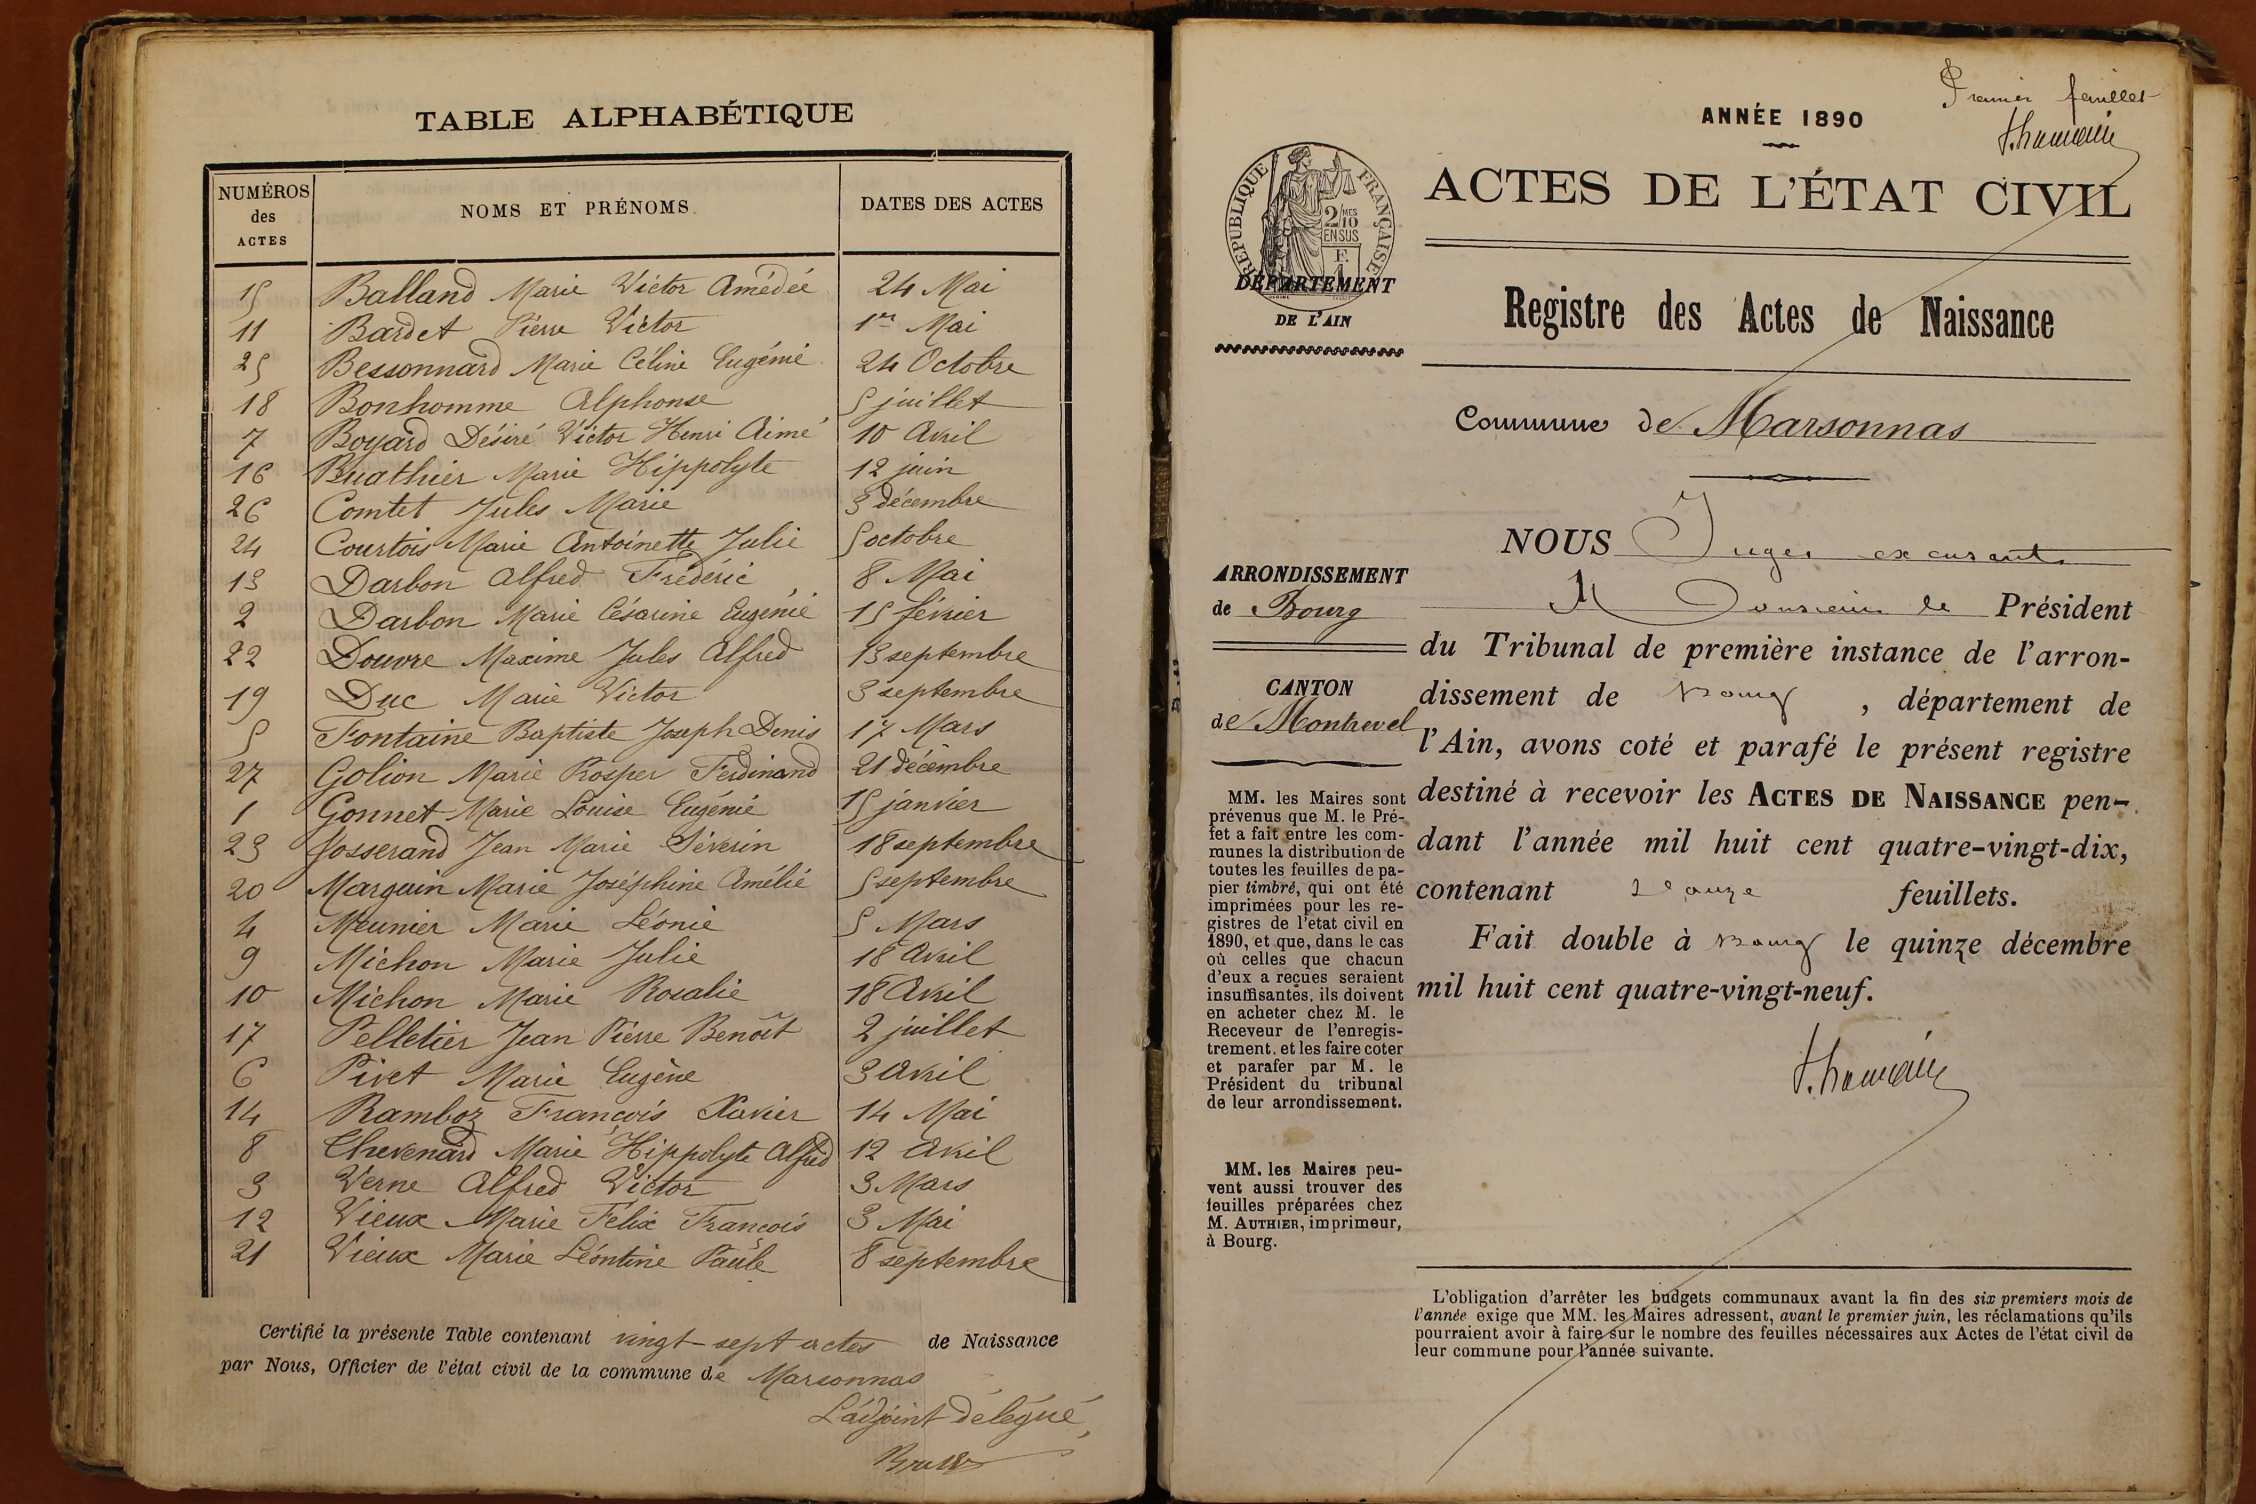 TABLE ALPHABÉTIQUE
NUMÉROS des ACTES
NOMS ET PRÉNOMS
DATES DES ACTES
15 Balland Marie Victor Amédée 24 Mai
11 Bardet Pierre Victor 1er Mai
25 Bessonnard Marie Céline Eugénie 24 Octobre
18 Bonhomme Alphonse 5 juillet
7 Boyard Désiré Victor Henri Aimé 10 Avril
16 Buathier Marie Hippolyte 12 juin
26 Comtet Jules Marie 3 décembre
24 Courtois Marie Antoinette Julie 5 octobre
13 Darbon Alfred Frédéric 8 Mai
2 Darbon Marie Césarine Eugénie 15 février
22 Douvre Maxime Jules Alfred 13 septembre
19 Duc Marie Victor 3 septembre
5 Fontaine Baptiste Joseph Denis 17 Mars
27 Golion Marie Prosper Ferdinand 21 décembre
1 Gonnet Marie Louise Eugénie 15 janvier
23 Josserand Jean Marie Séverin 18 septembre
20 Marguin Marie Joséphine Amélie 5 septembre
4 Meunier Marie Léonie 5 Mars
9 Michon Marie Julie 18 Avril
10 Michon Marie Rosalie 18 Avril
17 Pelletier Jean Pierre Benoît 2 juillet
6 Pivet Marie Eugène 3 Avril
14 Ramboz François Xavier 14 Mai
8 Thevenard Marie Hippolyte Alfred 12 Avril
3 Verne Alfred Victor 3 Mars
12 Vieux Marie Félix François 3 Mai
21 Vieux Marie Léontine Paule 8 septembre
Certifié la présente Table contenant vingt-sept actes de Naissance
par Nous, Officier de l'état civil de la commune de Marsonnas
L'adjoint délégué,
Premier feuillet
ANNÉE 1890
ACTES DE L'ÉTAT CIVIL
RÉPUBLIQUE FRANÇAISE
2/10
MES
EN SUS
F.
1
DÉPARTEMENT
DE L'AIN
Registre des Actes de Naissance
Commune de Marsonnas
ARRONDISSEMENT
de Bourg
CANTON
de Montrevel
MM. les Maires sont
prévenus que M. le Pré-
fet a fait entre les com-
munes la distribution de
toutes les feuilles de pa-
pier timbré, qui ont été
imprimées pour les re-
gistres de l'état civil en
1890, et que, dans le cas
où celles que chacun
d'eux a reçues seraient
insuffisantes, ils doivent
en acheter chez M. le
Receveur de l'enregis-
trement, et les faire coter
et parafer par M. le
Président du tribunal
de leur arrondissement.
MM. les Maires peu-
vent aussi trouver des
feuilles préparées chez
M. AUTHIER, imprimeur,
à Bourg.
NOUS Juge
Monsieur le Président
du Tribunal de première instance de l'arron-
dissement de Bourg, département de
l'Ain, avons coté et parafé le présent registre
destiné à recevoir les ACTES DE NAISSANCE pen-
dant l'année mil huit cent quatre-vingt-dix,
contenant feuillets.
Fait double à Bourg le quinze décembre
mil huit cent quatre-vingt-neuf.
L'obligation d'arrêter les budgets communaux avant la fin des six premiers mois de
l'année exige que MM. les Maires adressent, avant le premier juin, les réclamations qu'ils
pourraient avoir à faire sur le nombre des feuilles nécessaires aux Actes de l'état civil de
leur commune pour l'année suivante.